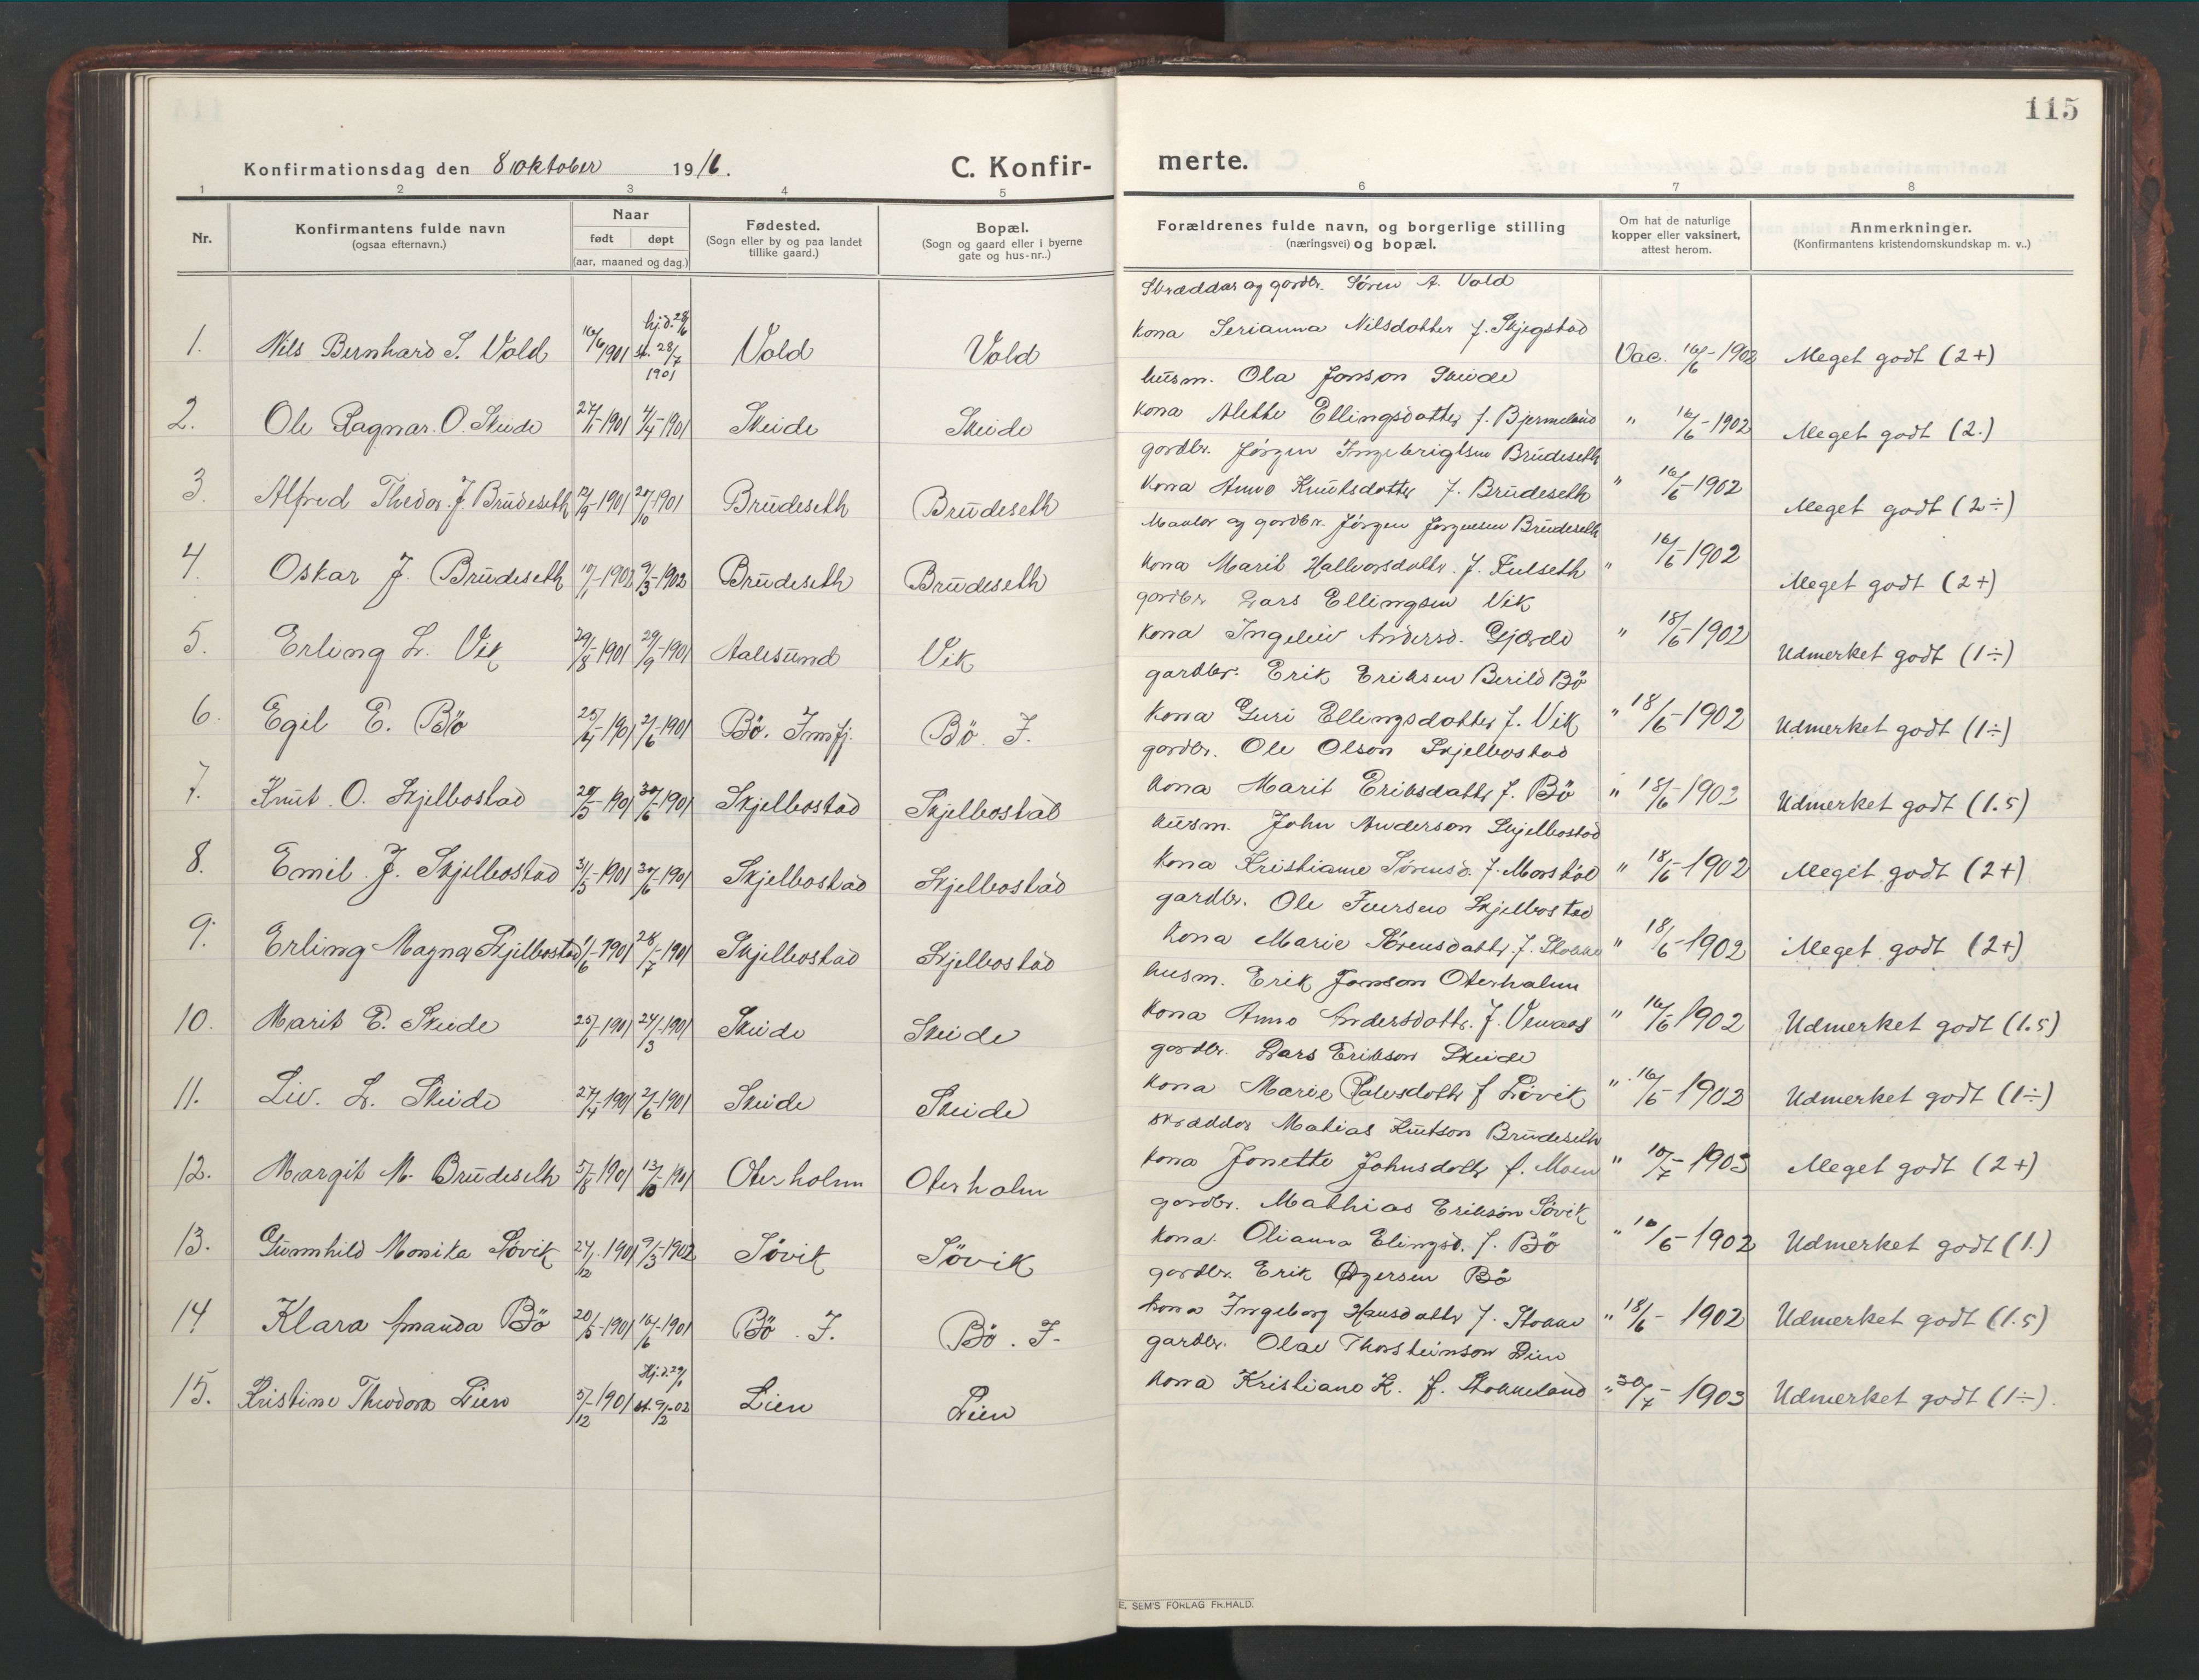 115
Konfirmationsdag den 8 oktober 1916. C. Konfir- merte.
1 2 3 4 5 6 7 8
Nr. Konfirmantens fulde navn (ogsaa efternavn.) Naar født døpt (aar, maaned og dag.) Fødested. (Sogn eller by og paa landet tillike gaard.) Bopæl. (Sogn og gaard eller i byerne gate og hus-nr..) Forældrenes fulde navn, og borgerlige stilling (næringsvei) og bopæl. Om hat de naturlige kopper eller vaksinert, attest herom. Anmerkninger. (Konfirmantens kristendomskundskap m. v..)
Skrædder og gordbr. Søren A. Vold
1. Nils Bernhard S. Vold 16/6 1901 hj.d. 28/6 st. 28/7 1901 Vold Vold kona Serianna Nilsdotter f. Skjegstad Vac. 16/6-1902 Meget godt (2+)
husm. Ola Jonson Skeide
2. Ole Ragnar O. Skeide 27/1-1901 4/4-1901 Skeide Skeide kona Alette Ellingsdotter f. Bjermeland " 16/6-1902 Meget godt (2.)
gordbr. Jørgen Ingebrigtsen Brüdeseth
3. Alfred Thedor. J. Brüdeseth 12/9-1901 20/10-1901 Brüdeseth Brüdeseth kona Anne Knutsdotter f. Brüdeseth " 16/6-1902 Meget godt (2÷)
gordbr. Jørgen Jørgensen Brüdeseth
4. Oskar J. Brüdeseth 19/1-1902 9/3-1902 Brüdeseth Brüdeseth kona Marit Hallvorsdottr. f. " 16/6-1902 Meget godt (2+)
gordbr Lars Ellingsen Vik
5. Erling L. Vik 29/8-1901 29/9-1901 Aalesünd Vik kona Ingeleiv Andersd. Gjærde " 18/6-1902 Udmerket godt (1÷)
gardbr. Erik Eriksen Berild Bö
6. Egil E. Bö 25/4-1901 2/6-1901 Bö. Innfj. Bö. I. kona Guri Ellingsdotter f. Vik " 18/6-1902 Udmerket godt (1÷)
gordbr. Ole Olson Skjelbostad
7. Knut O. Skjelbostad 29/5-1901 30/6-1901 Skjelbostad Skjelbostad kona Marit Eriksdottr f. Bö " 18/6-1902 Udmerket godt (1.5)
husm. John Anderson Skjelbostad
8. Emil J. Skjelbostad 31/5-1901 30/6-1901 Skjelbostad Skjelbostad kona Kristianne Sørensd. f. Morstøl " 18/6-1902 Meget godt (2+)
gardbr. Ole Iversen Skjelbostad
9. Erling Magna Skjelbostad 1/6-1901 28/7-1901 Skjelbostad Skjelbostad kona Marie Sørensdottr f. Stokke " 18/6-1902 Meget godt (2+)
husm. Erik Jonson Oterholm
10. Marit E. Skeide 25/1-1901 24/3-1901 Skeide Skeide kona Anne Andersdottr. f. Venaas " 16/6 1902 Udmerket godt (1.5)
gordbr. Lars Erikson Skeide
11. Liv. L. Skeide 27/4-1901 2/6-1901 Skeide Skeide kona Marie f. Løvik " 16/6-1902 Udmerket godt (1÷)
skrædder Matias Knutson Brüdeseth
12. Margit M. Brüdeseth 5/8-1901 13/10-1901 Oterholm Oterholm kona Jonette Johnsdottr f. Moen " 10/7-1903 Meget godt (2+)
gordbr. Mathias Erikson Søvik
13. Gunnhild Monika Søvik 27/12-1901 9/3-1902 Søvik Søvik kona Olianna Elingsd. f. Bö " 16/6-1902 Udmerket godt (1.)
gordbr. Erik Bö
14 Klara Amanda Bö 20/5-1901 16/6-1901 Bö. I. Bö. I. kona Ingeborg Hansdottr f. Stokke " 18/6-1902 Udmerket godt (1.5)
gardbr. Olav Thorsteinson Lien
15. Kristine Theodora Lien 5/12-1901 Hj.d. 29/1 st. 9/2-02 Lien Lien kona Kristiane K. f. Stokkeland " 30/7-1903 Udmerket godt (1÷).
E. SEM'S FORLAG FR.HALD.